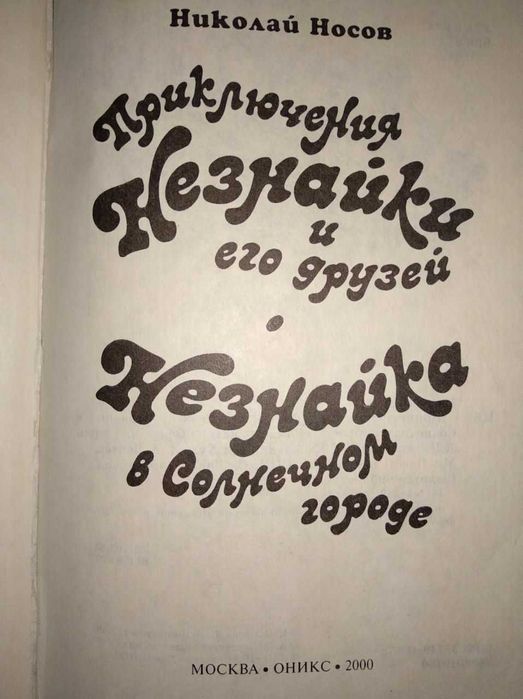 Николай Носов
Приключения
Незнайки
и
его друзей
•
Незнайка
в Солнечном
городе
МОСКВА • ОНИКС • 2000